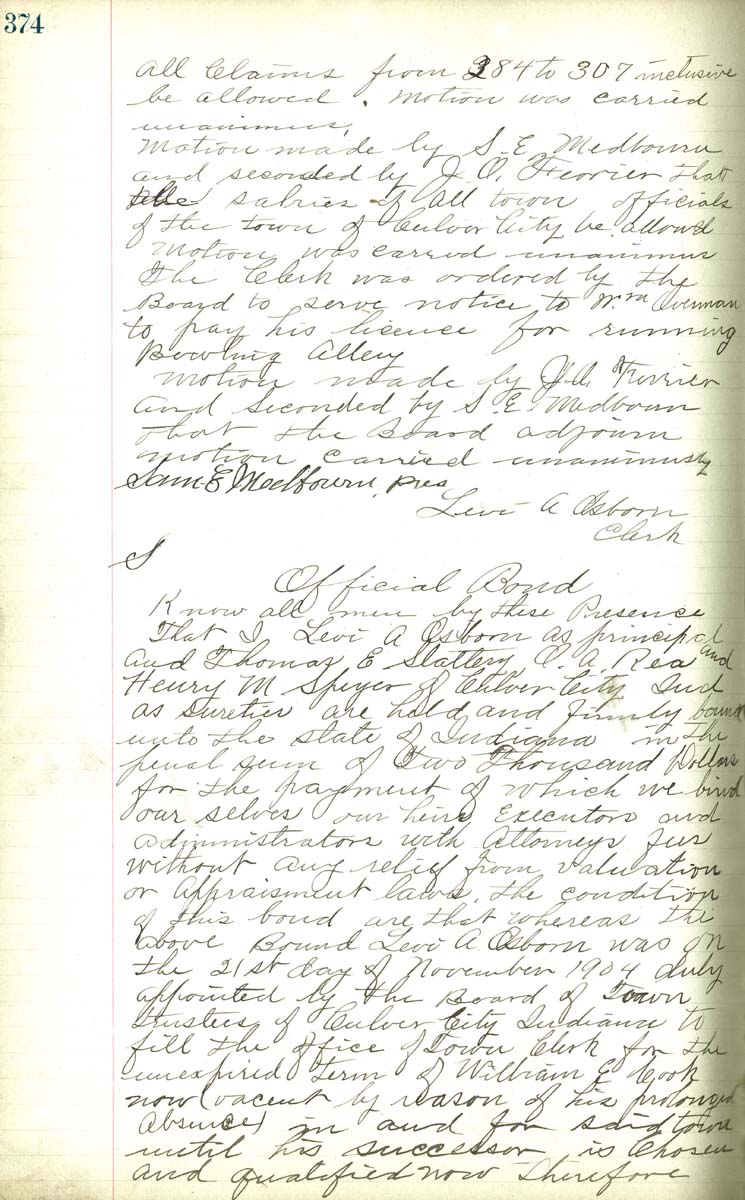 374
All Claims from 284 to 307 inclusive
be allowed. Motion was carried
unanimus,
Motion made by S. E. Medbourn
and seconded by J. O. Ferrier that
the salries of all town officials
of the town of Culver City be allowd
Motion was carried unanimus
The Clerk was ordered by the
Board to serve notice to Wm Overman
to pay his licence for running
Bowling Alley
Motion made by J. O. Ferrier
and seconded by S. E. Medbourn
that the Board adjourn
motion carried unanimusly
Sam. E Medbourn, Pres
Levi A Osborn
Clerk
Official Bond
Know all men by these Presence
That I Levi A Osborn as principal
and Thomas E Slattery O. A. Rea and
Henry M Speyer of Culver City Ind
as sureties are held and firmly bound
unto the state of Indiana in the
penal sum of Two Thousand Dollars
for the payment of which we bind
our selves our heirs Executors and
administrators with Attorneys fees
without any relief from valuation
or Appraisment laws. the condition
of this bond are that whereas the
above Bound Levi A. Osborn was on
the 21st day of November 1904 duly
appointed by the Board of Town
trustees of Culver City Indiana to
fill the office of Town Clerk for the
unexpired Term of William E Cook
now (vacent by reason of his prolonged
absence) in and for said town
until his successor is Chosen
and qualified now Therefore